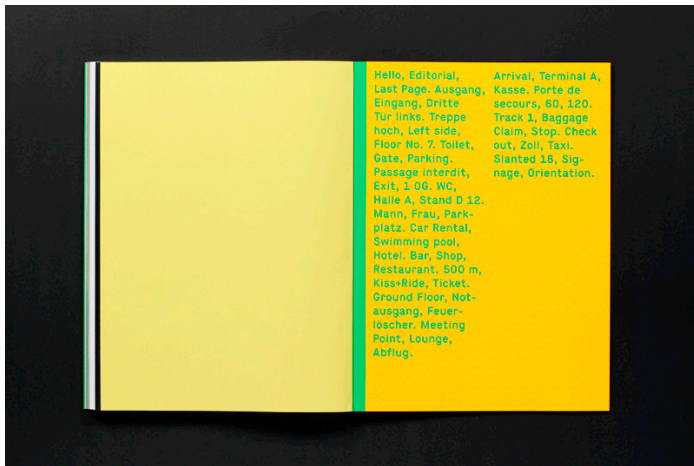 Hello, Editorial,
Last Page. Ausgang,
Eingang, Dritte
Tür links. Treppe
hoch, Left side,
Floor No. 7. Toilet,
Gate, Parking.
Passage interdit,
Exit, 1 OG. WC,
Halle A, Stand D 12.
Mann, Frau, Park-
platz. Car Rental,
Swimming pool,
Hotel. Bar, Shop,
Restaurant. 500 m,
Kiss+Ride, Ticket.
Ground Floor, Not-
ausgang, Feuer-
löscher. Meeting
Point, Lounge,
Abflug.
Arrival, Terminal A,
Kasse. Porte de
secours, 60, 120.
Track 1, Baggage
Claim, Stop. Check
out, Zoll, Taxi.
Slanted 18, Sig-
nage, Orientation.